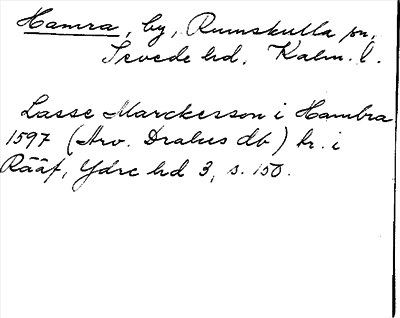 Hamra, by, Rumskulla sn,
Sevede hd, Kalm. l.
Lasse Marckesson i Hambra
1597 (Arv. Drakes db) tr. i
Rääf, Ydre hd 3, s. 150.